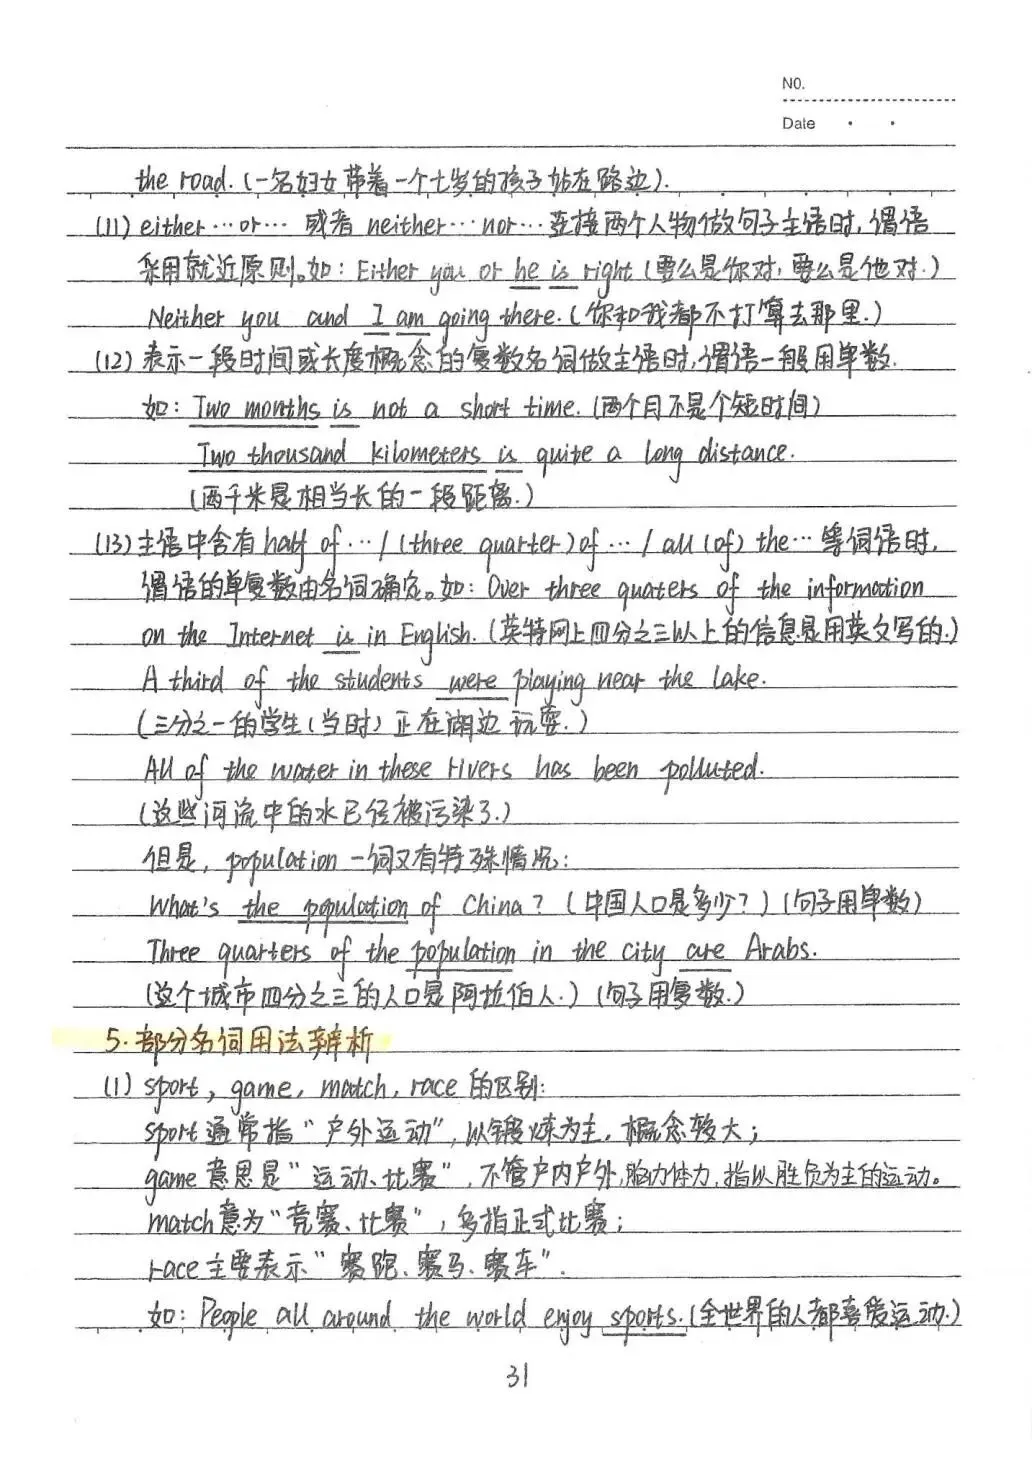 NO.
Date
the road.(一名妇女带着一个七岁的孩子站在路边).
(11) either…or… 或者 neither…nor…连接两个人物做句子主语时,谓语
采用就近原则。如: Either you or he is right (要么是你对,要么是他对.)
Neither you and I am going there.(你和我都不打算去那里.)
(12) 表示一段时间或长度概念的复数名词做主语时,谓语一般用单数.
如: Two months is not a short time.(两个月不是个短时间)
Two thousand kilometers is quite a long distance.
(两千米是相当长的一段距离.)
(13) 主语中含有half of…/(three quarter)of…/all (of) the…等词语时,
谓语的单复数由名词确定。如: Over three quaters of the information
on the Internet is in English.(英特网上四分之三以上的信息是用英文写的.)
A third of the students were playing near the lake.
(三分之一的学生(当时)正在湖边玩耍.)
All of the water in these rivers has been polluted.
(这些河流中的水已经被污染了.)
但是, population 一词又有特殊情况:
What's the population of China? (中国人口是多少?)(句子用单数)
Three quarters of the population in the city are Arabs.
(这个城市四分之三的人口是阿拉伯人.)(句子用复数.)
5.部分名词用法辨析
(1) sport, game, match, race 的区别:
sport通常指"户外运动",以锻炼为主,概念较大;
game意思是"运动、比赛",不管户内户外,脑力体力,指以胜负为主的运动。
match意为"竞赛、比赛",多指正式比赛;
race主要表示"赛跑、赛马、赛车".
如: People all around the world enjoy sports.(全世界的人都喜爱运动.)
31